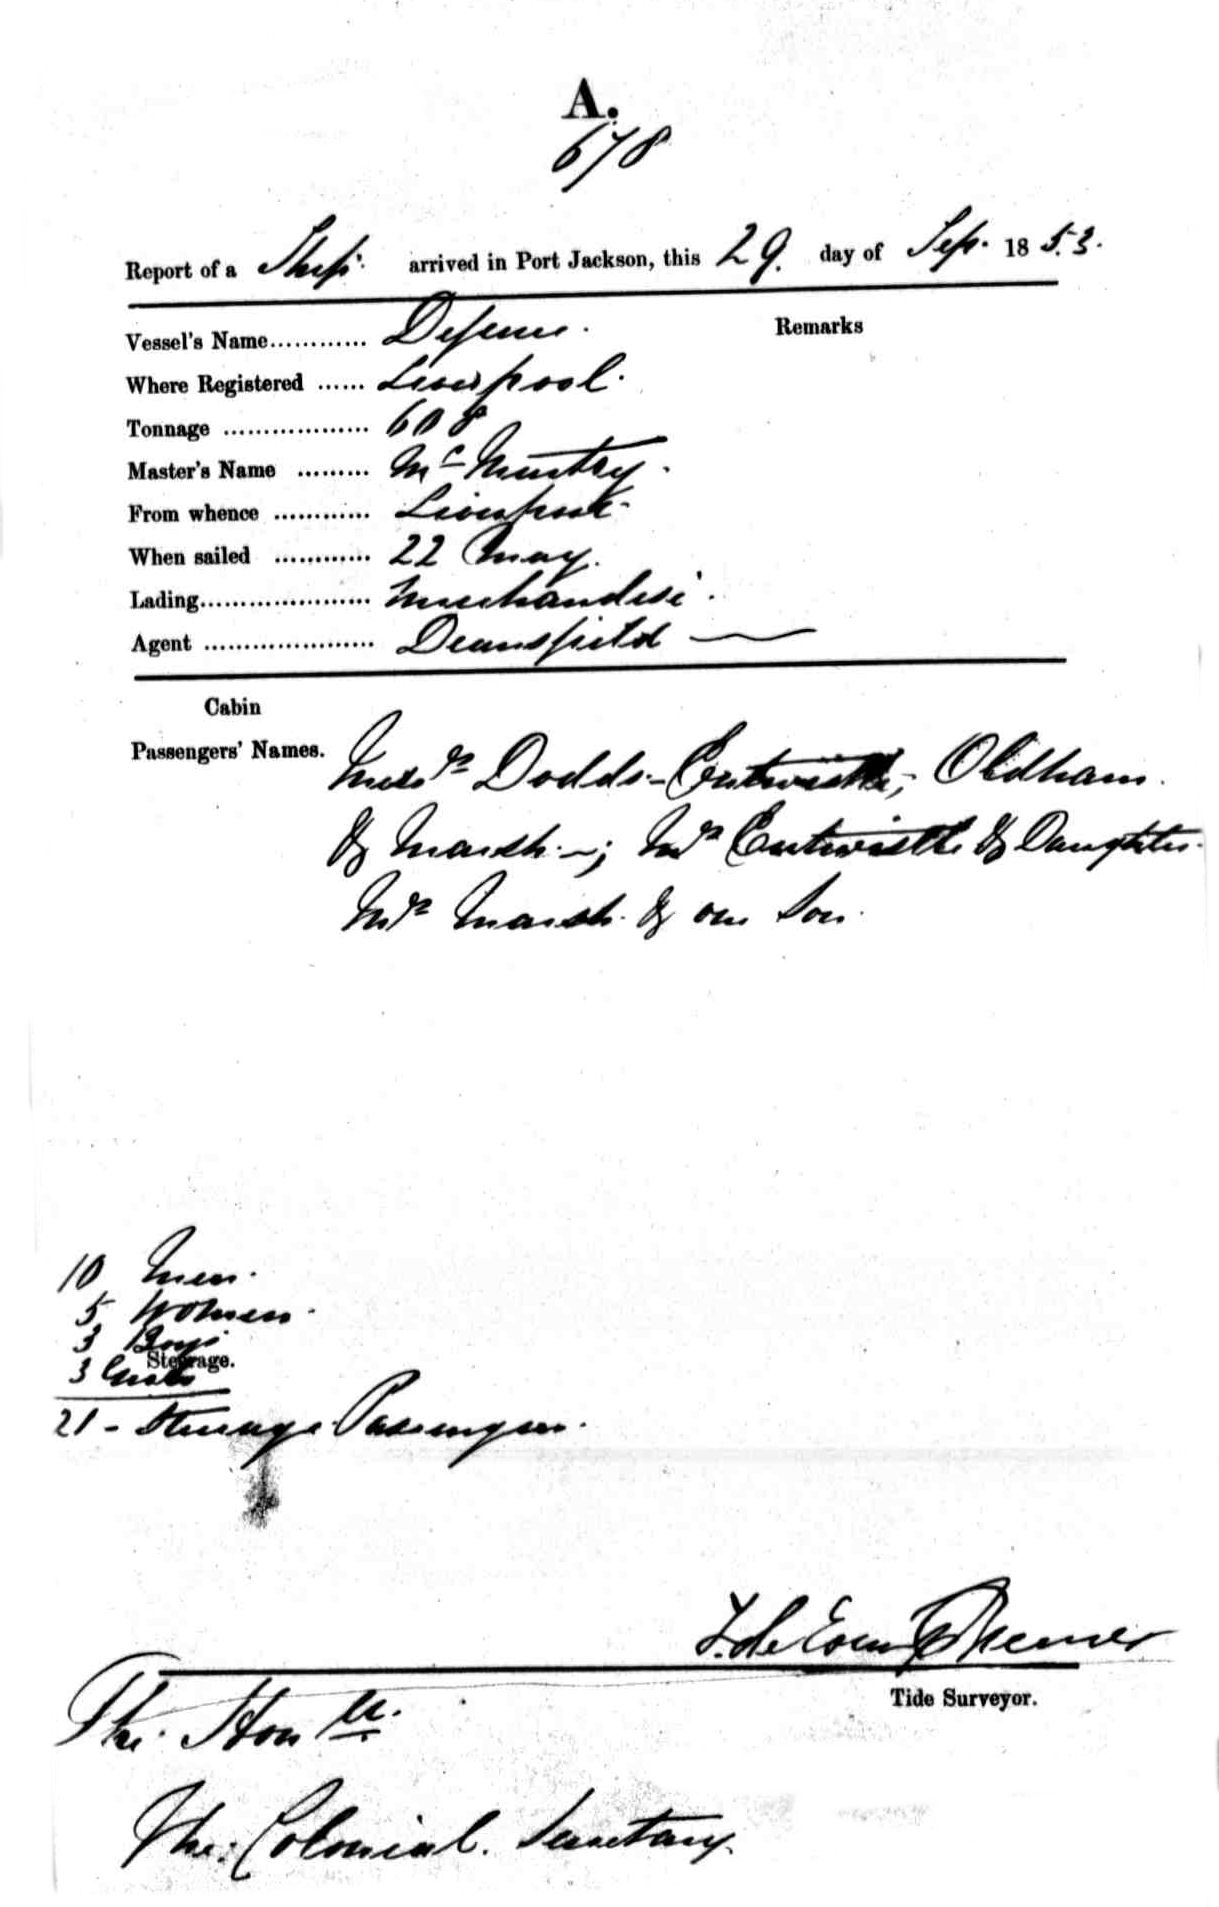 A.
678
Report of a Ship. arrived in Port Jackson, this 29. day of Sep. 1853.
Vessel's Name............ Defence. Remarks
Where Registered ...... Liverpool.
Tonnage .................. 608
Master's Name ......... Mc
From whence ............ Liverpool
When sailed ............ 22 May.
Lading..................... Merchandise.
Agent ..................... Deansfield
Cabin
Passengers' Names. Messrs Dodds - Entwistle, Oldham.
& Marsh -; Mrs Entwistle & Daughter.
Mrs Marsh. & one Son.
10 Men.
5 Women.
3 Boys
Steerage.
3 Girls
21 - Steerage Passengers.
Tide Surveyor.
The Honble.
The Colonial. Secretary.